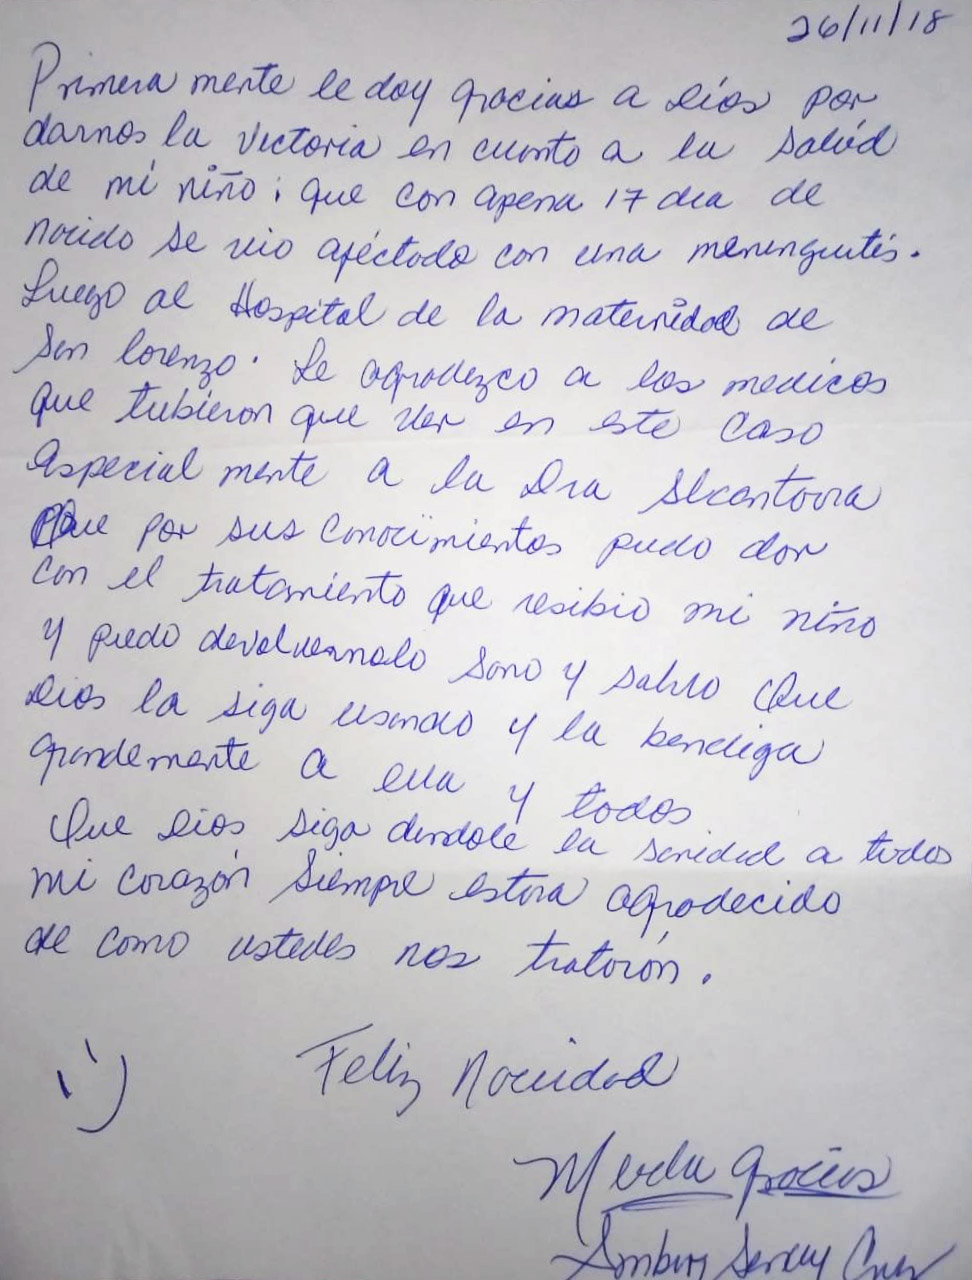 26/11/18
Primera mente le doy gracias a Dios por
darnos la victoria en cuanto a la salud
de mi niño; que con apena 17 dia de
nacido se vio aféctado con una meninguitis.
Luego al Hospital de la maternidad de
San lorenzo. Le agradezco a los medicos
que tubieron que ver en este caso
Especial mente a la Dra Alcantara
Que por sus conocimientos pudo dar
con el tratamiento que resibio mi niño
y puedo devolvernolo sano y salvo Que
Dios la siga usando y la bendiga
grandemente a ella y todos
Que Dios siga dandole la sanidad a todos
mi corazón Siempre estara agradecido
de como ustedes nos tratarón.
Feliz Navidad
:)
gracias